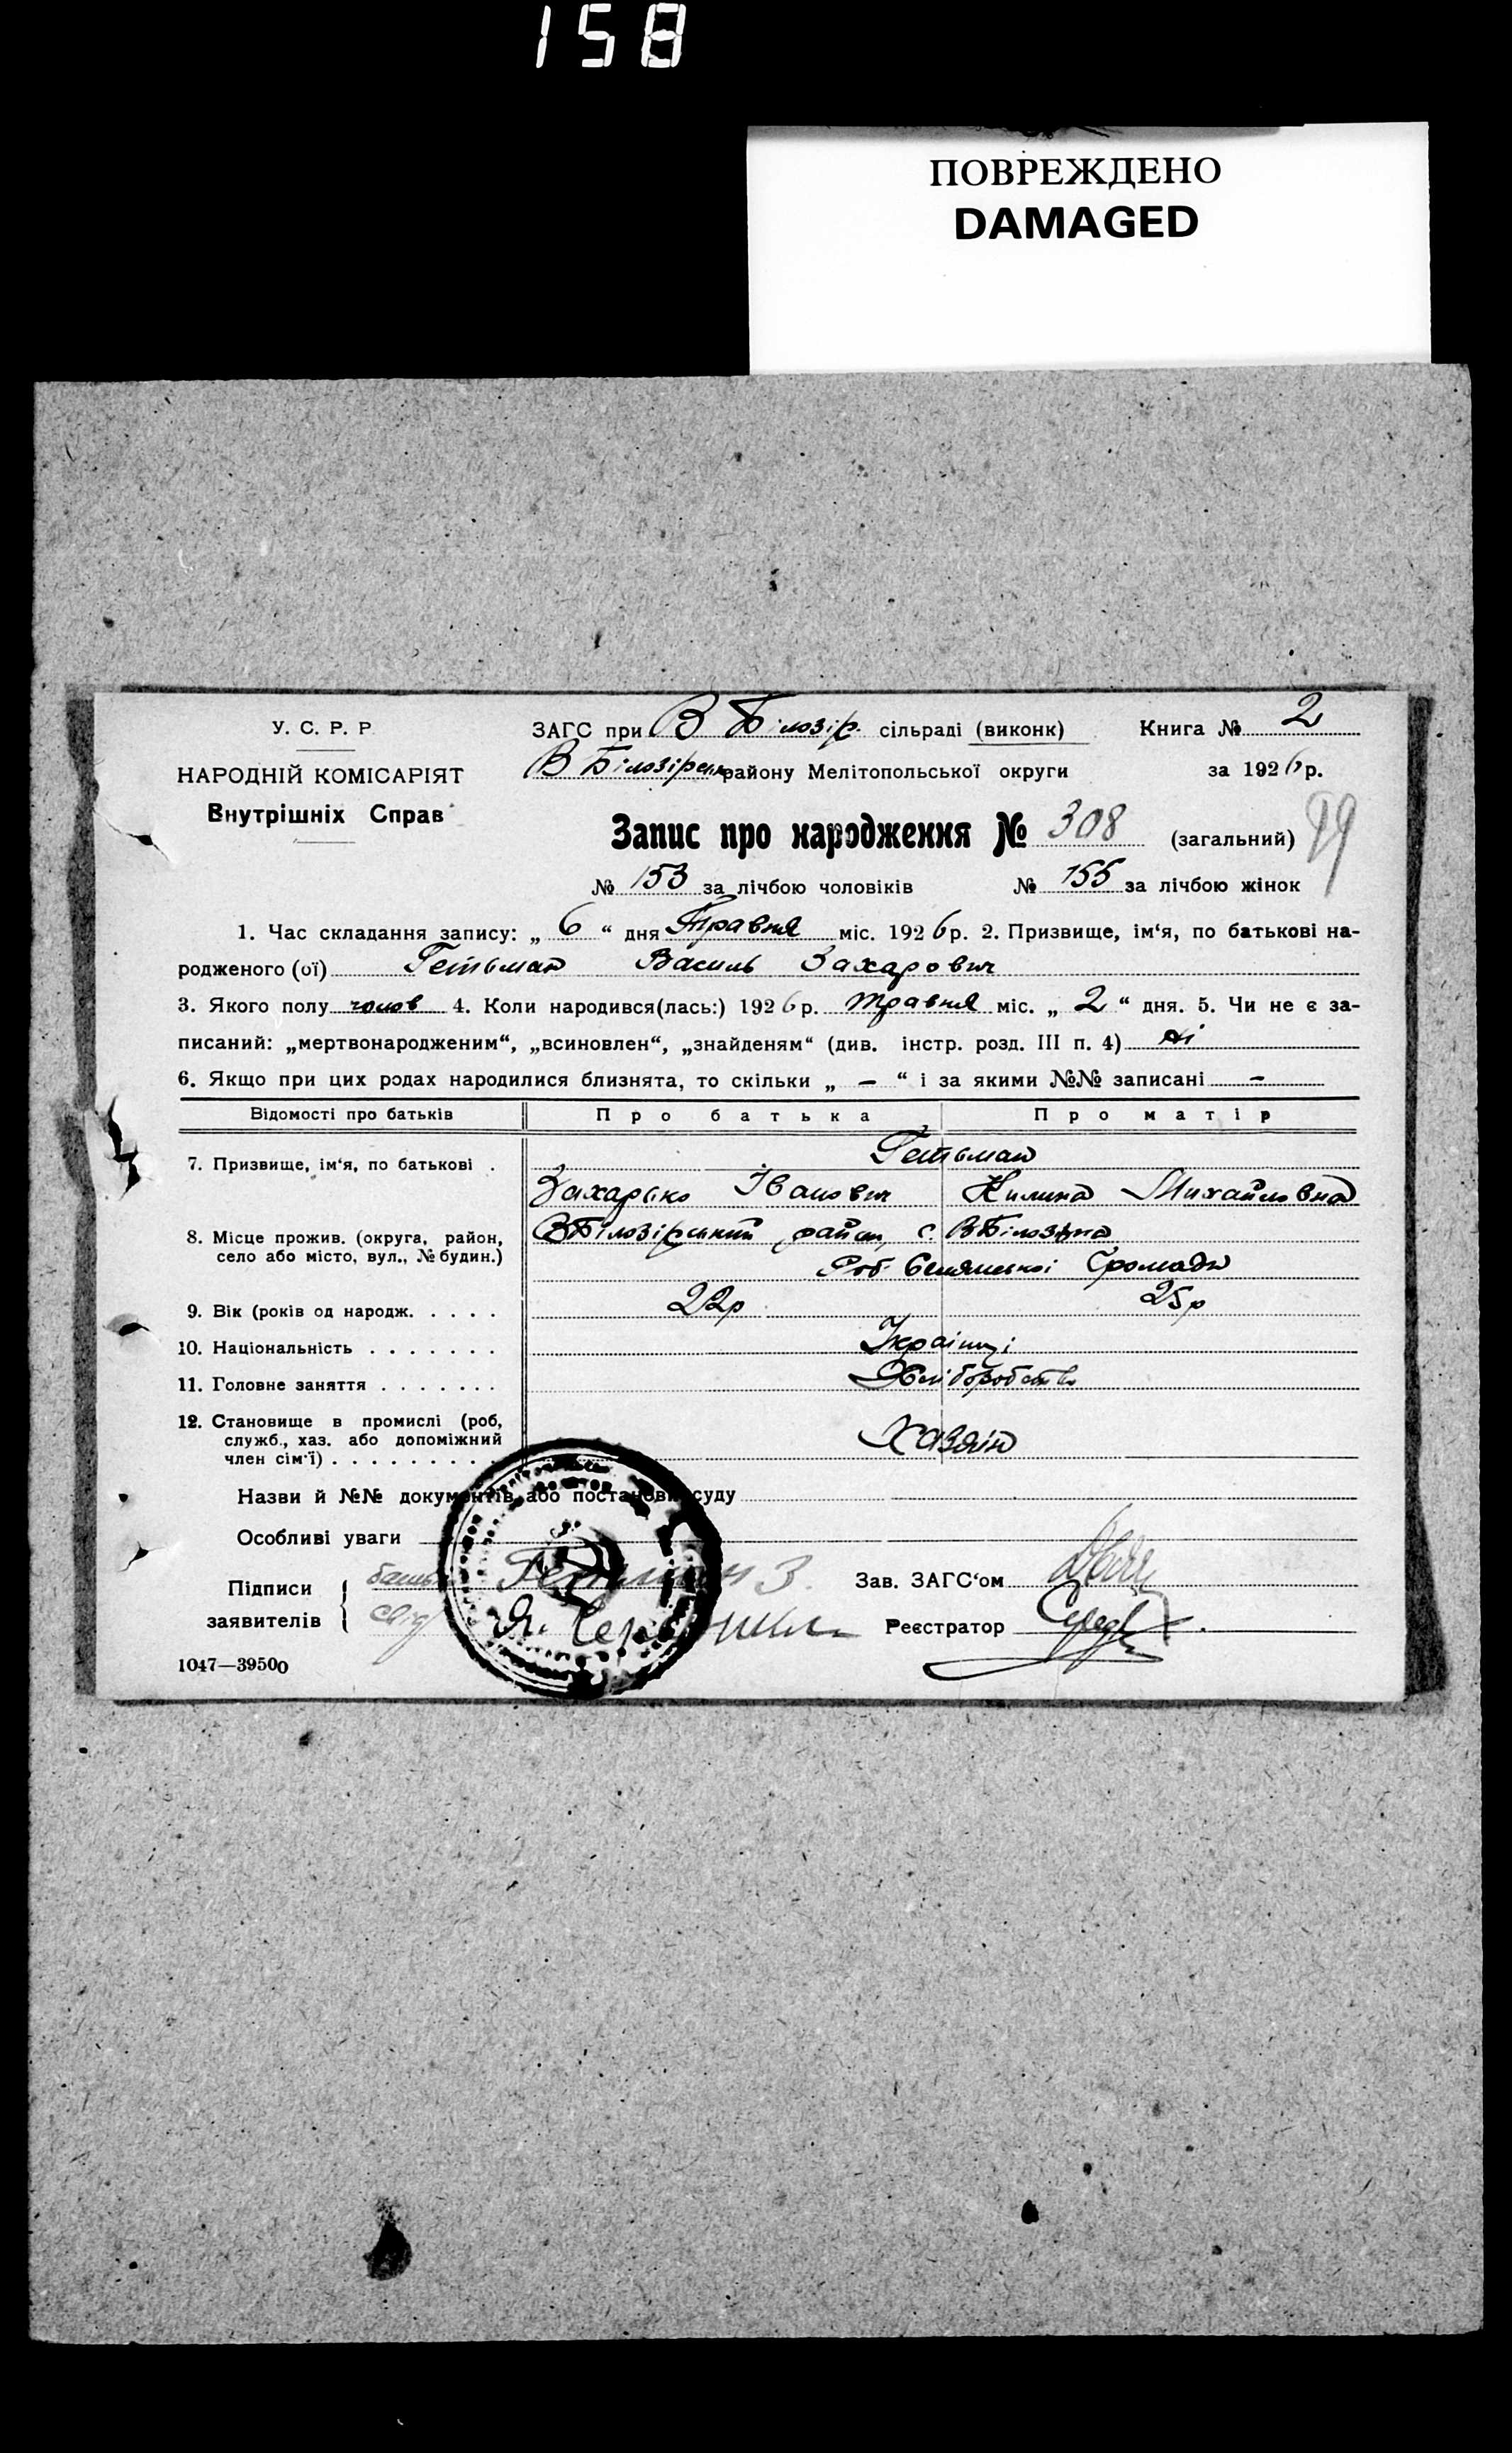 158
ПОВРЕЖДЕНО
DAMAGED
У. С. Р. Р
НАРОДНІЙ КОМІСАРІЯТ
Внутрішніх Справ
ЗАГС при В Білозір. сільраді (виконк) Книга № 2
В Білозірськ району Мелітопольської округи за 1926 р.
Запис про народження № 308 (загальний) 99
№ 153 за лічбою чоловіків № 155 за лічбою жінок
1. Час складання запису: „ 6 “ дня Травня міс. 1926 р. 2. Призвище, ім‘я, по батькові на-
родженого (ої) Гетьман Василь Захарович
3. Якого полу чолов 4. Коли народився(лась:) 1926 р. травня міс. „ 2 “ дня. 5. Чи не є за-
писаний: „мертвонародженим“, „всиновлен“, „знайденям“ (див. інстр. розд. III п. 4) ні
6. Якщо при цих родах народилися близнята, то скільки „ – “ і за якими №№ записані –
Відомості про батьків Про батька Про матір
7. Призвище, ім‘я, по батькові . Гетьман
Захарько Іванович Килина Михайловна
8. Місце прожив. (округа, район, село або місто, вул., № будин.) ВБілозірський район, с. ВБілозірка
Роб. Селянської Громади
9. Вік (років од народж. . . . . 22р 25р
10. Національність . . . . . . . Українці
11. Головне заняття . . . . . . . Хліборобство
12. Становище в промислі (роб,
служб., хаз. або допоміжний
член сім‘ї) . . . . . . . . . Хазяїн
Назви й №№ документів або постанови суду
Особливі уваги
Підписи
заявителів
батько Гетьман З.
свід Я.
Зав. ЗАГС‘ом
Реєстратор
1047—39500